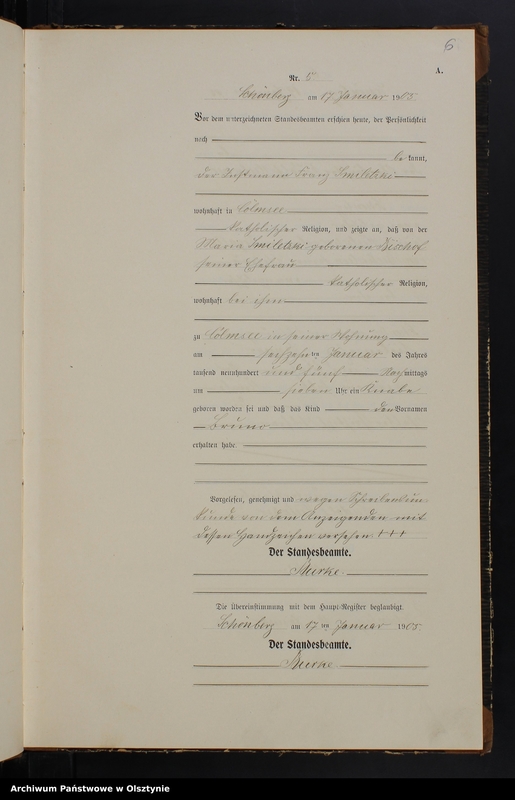 6.
A.
Nr. 5
Schönberg am 17. Januar 1905
Vor dem unterzeichneten Standesbeamten erschien heute, der Persönlichkeit
nach
be kannt,
der Instmann Franz
wohnhaft in Cölmsee
katholischer Religion, und zeigte an, daß von der
Maria geborenen Bischof
seiner Ehefrau
katholischer Religion,
wohnhaft bei ihm
zu Cölmsee in seiner Wohnung
am sechszehnten Januar des Jahres
tausend neunhundert und fünf Nachmittags
um sieben Uhr ein Knabe
geboren worden sei und daß das Kind den Vornamen
Bruno
erhalten habe.
Vorgelesen, genehmigt und wegen Schreibenun-
kunde von dem Anzeigenden mit
dessen Handzeichen versehen +++
Der Standesbeamte.
Die Übereinstimmung mit dem Haupt-Register beglaubigt.
Schönberg am 17 ten Januar 1905
Der Standesbeamte.
Archiwum Państwowe w Olsztynie